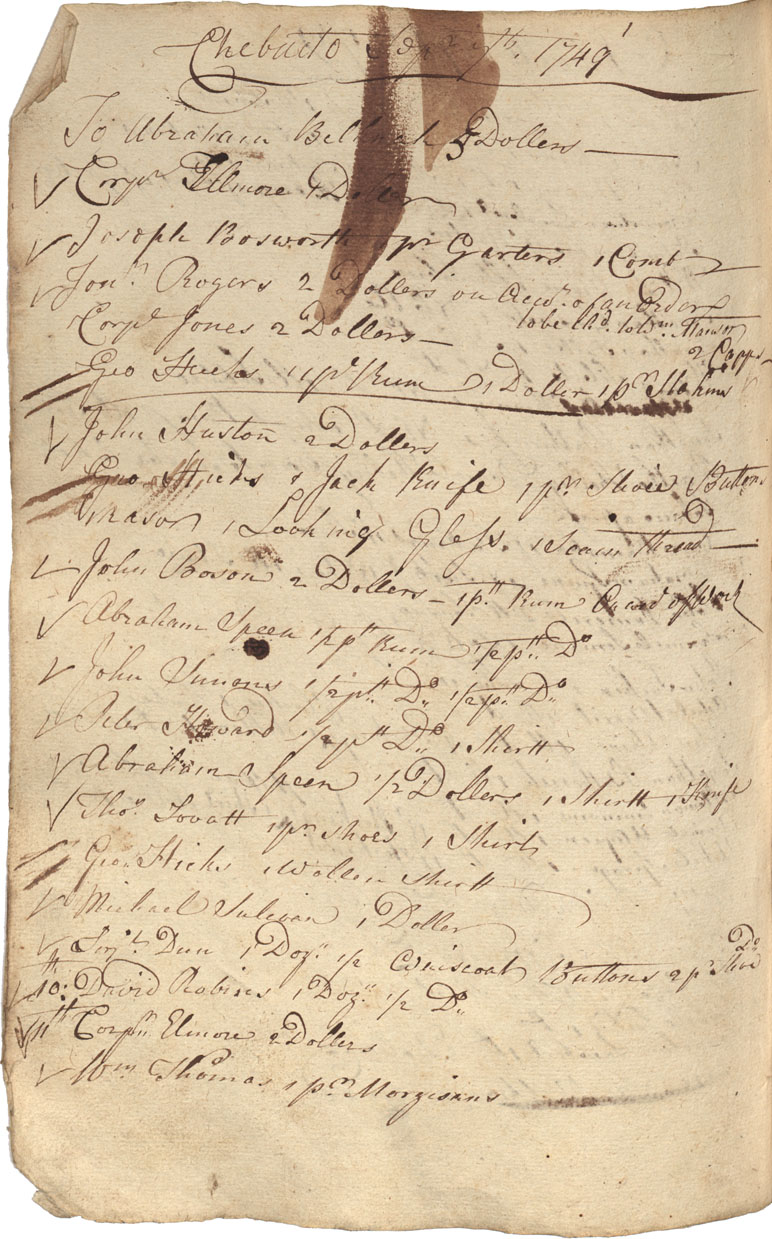 Chebucto Sepr 9th. 1749
To Abraham 5 Dollers
Corpl. Ellmore 1 Doller
Joseph Bosworth 1 pr Garters 1 Comb
Jonn. Rogers 2 Dollers on Accot. of an Order
to be Chd. to Wm.
Corpl. Jones 2 Dollers
2 Capps
Geo Hicks 1 pt Rum 1 Doller 1 pr
John Huston 2 Dollers
Geo Hicks 1 Jack Knife 1 pr. Shoie Buttons
Mason 1 Looking Glass. 1 Scain thread
John Boson 2 Dollers 1 pt Rum of Work
Abraham Speen 1/2 pt Rum 1/2 pt. Do
John Simons 1/2 pt. Do. 1/2 pt. Do.
Peter Howard 1/2 pt Do. 1 Shirtt
Abraham Speen 1/2 Dollers 1 Shirtt 1 Knife
Thos. Lovatt 1 pr Shoes 1 Shirtt
Geo. Hicks 1 Wollen Shirtt
Michael Sulivan 1 Doller
Do
Serjt. Dun 1 Doz. 1/2 Wniscoat Buttons 2 pr. Shoe
10th: David Robins 1 Doz. 1/2 Do.
11th Corpll Elmore 2 Dollers
Wm. Thomas 1 pr. Morgisans